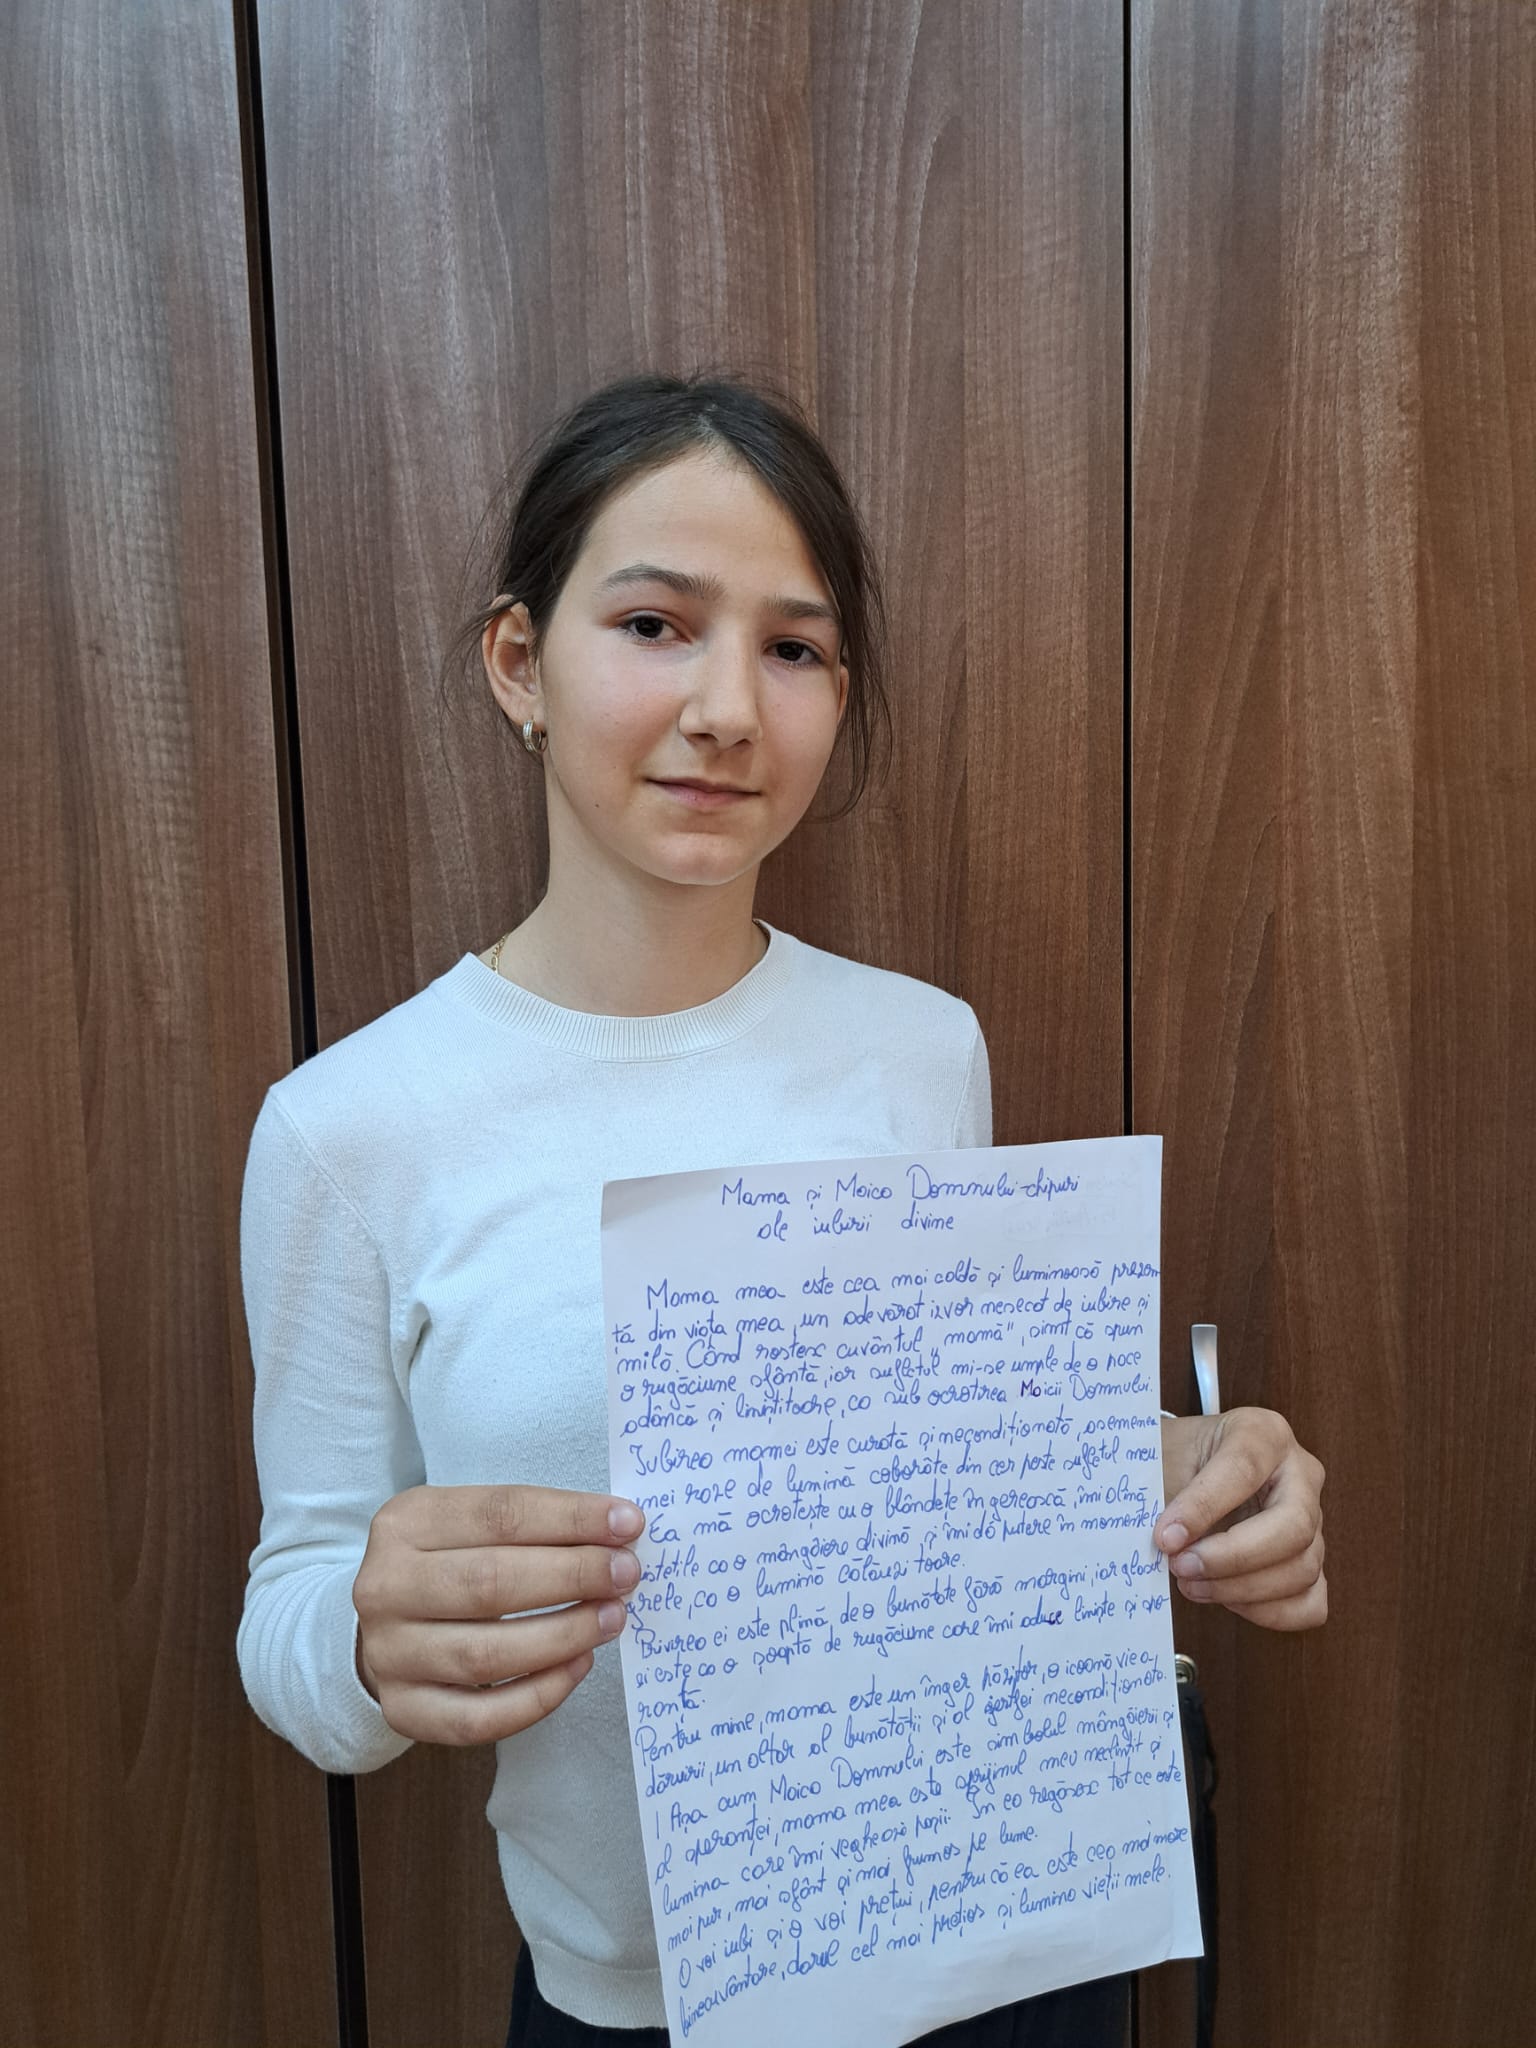 Mama și Maica Domnului-chipuri
ale iubirii divine
Mama mea este cea mai caldă și luminoasă prezen-
ță din viața mea, un adevărat izvor nesecat de iubire și
milă. Când rostesc cuvântul „mamă”, simt că spun
o rugăciune sfântă, iar sufletul mi-se umple de o pace
adâncă și liniștitoare, ca sub ocrotirea Maicii Domnului.
Iubirea mamei este curată și necondiționată, asemenea
unei raze de lumină coborâte din cer peste sufletul meu.
Ea mă ocrotește cu o blândețe îngerească, îmi alină
tristețile ca o mângâiere divină, și îmi dă putere în momentele
grele, ca o lumină călăuzitoare.
Privirea ei este plină de o bunătate fără margini, iar glasul
ei este ca o șoaptă de rugăciune care îmi aduce liniște și spe-
ranță.
Pentru mine, mama este un înger păzitor, o icoană vie a
dăruirii, un altar al bunătății și al jertfei necondiționate.
Așa cum Maica Domnului este simbolul mângâierii și
al speranței, mama mea este sprijinul meu neclintit și
lumina care îmi veghează pașii. În ea regăsesc tot ce este
mai pur, mai sfânt și mai frumos pe lume.
O voi iubi și o voi prețui, pentru că ea este cea mai mare
binecuvântare, darul cel mai prețios și lumina vieții mele.